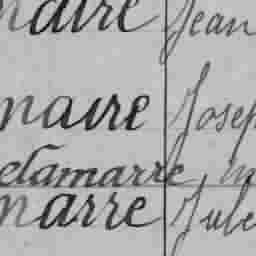 maire Jean
maire Josep
elamarre, m
marre Jule